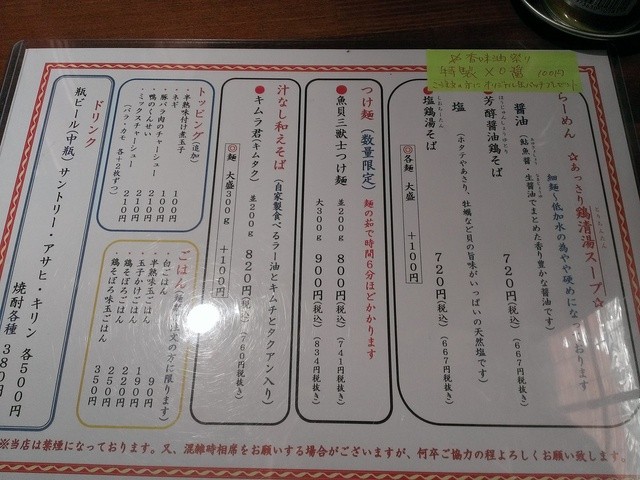 香味油祭り
らーめん
☆あっさり鶏清湯スープ☆
細麺～低加水の為やや硬めになっております
醤油
(鮎魚醤・生醤油でまとめた香り豊かな醤油です)
芳醇醤油鶏そば
720円(税込)(667円税抜き)
塩
(ホタテやあさり、牡蠣など貝の旨味がいっぱいの天然塩です)
塩鶏湯そば
720円(税込)(667円税抜き)
◎各麺 大盛 +100円
つけ麺(数量限定)
麺の茹で時間6分ほどかかります
●魚貝三獣士つけ麺
並200g 800円(税込)(741円税抜き)
大300g 900円(税込)(834円税抜き)
汁なし和えそば
(自家製食べるラー油とキムチとタクアン入り)
●キムラ君(キムタク)
並200g 820円(税込)(760円税抜き)
◎麺 大盛300g +100円
トッピング(追加)
・半熟味付け煮玉子 100円
・ネギ 100円
・豚バラ肉のチャーシュー 210円
・鴨のくんせい 210円
・ミックスチャーシュー 210円
(バラ・カモ 各+2枚ずつ)
ごはん
・白ごはん 90円
・半熟味玉ごはん 190円
・玉子かけごはん 220円
・鶏そぼろごはん 250円
・鶏そぼろ味玉ごはん 350円
ドリンク
瓶ビール(中瓶) サントリー・アサヒ・キリン 各500円
焼酎各種 380円
※当店は禁煙になっております。又、混雑時相席をお願いする場合がございますが、何卒ご協力の程よろしくお願い致します。